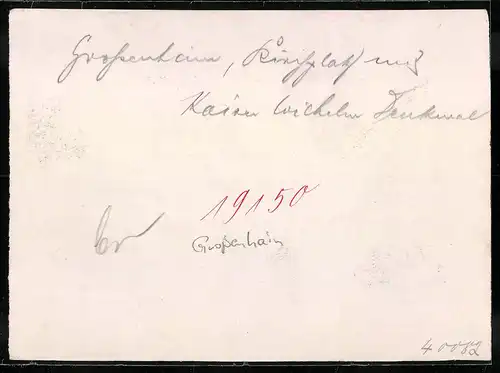 Großenhain, Kirchplatz mit
Kaiser Wilhelm Denkmal
19150
Großenhain
40082